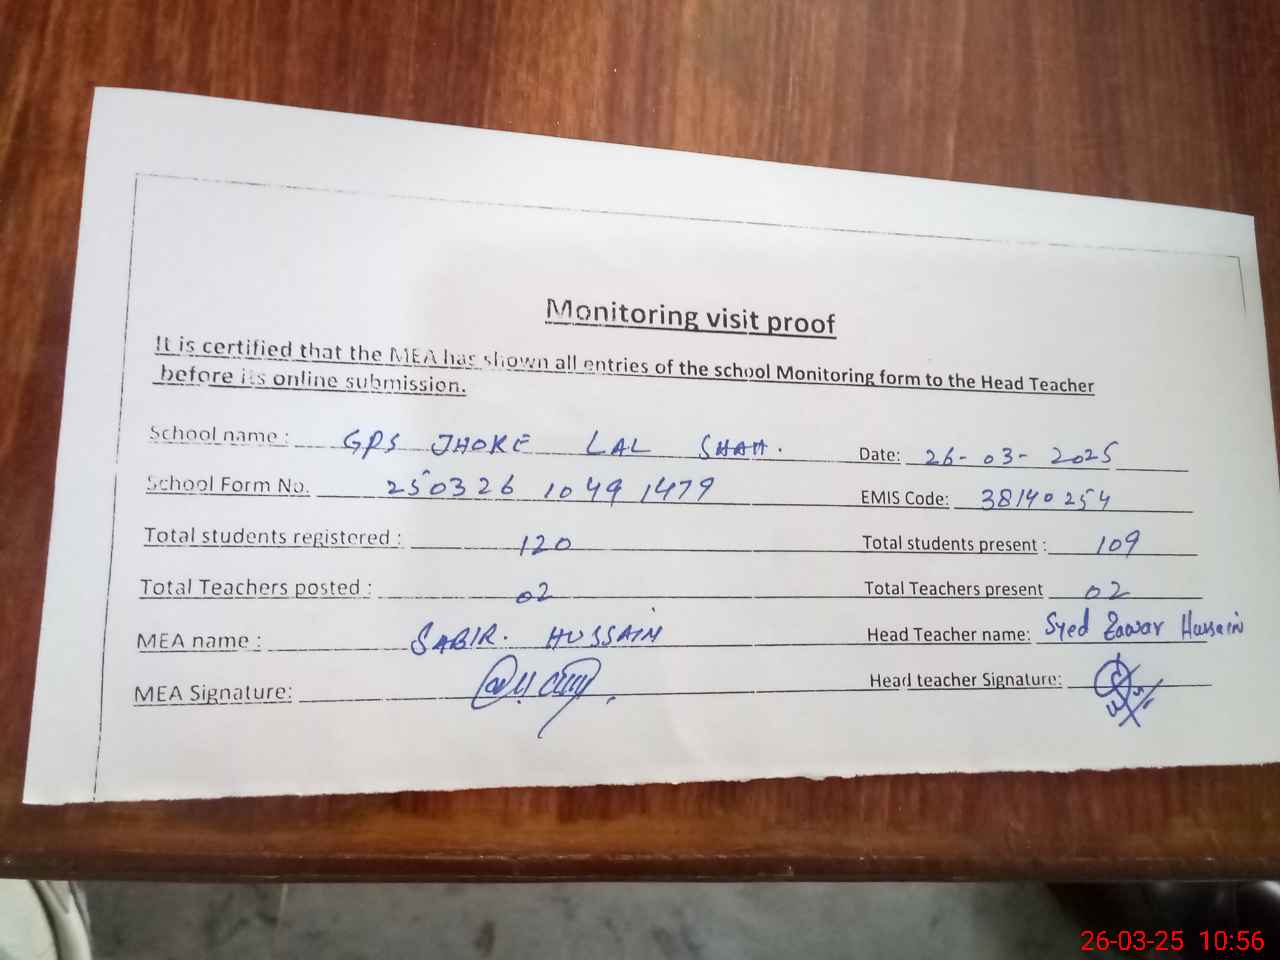 Monitoring visit proof
It is certified that the MEA has shown all entries of the school Monitoring form to the Head Teacher
before its online submission.
School name : GPS JHOKE LAL SHAH. Date: 26-03-2025
School Form No. 250326 1049 1479 EMIS Code: 38140254
Total students registered : 120 Total students present : 109
Total Teachers posted : 02 Total Teachers present 02
MEA name : SABIR. HUSSAIN Head Teacher name: Syed Zawar Hussain
MEA Signature: Head teacher Signature:
26-03-25 10:56